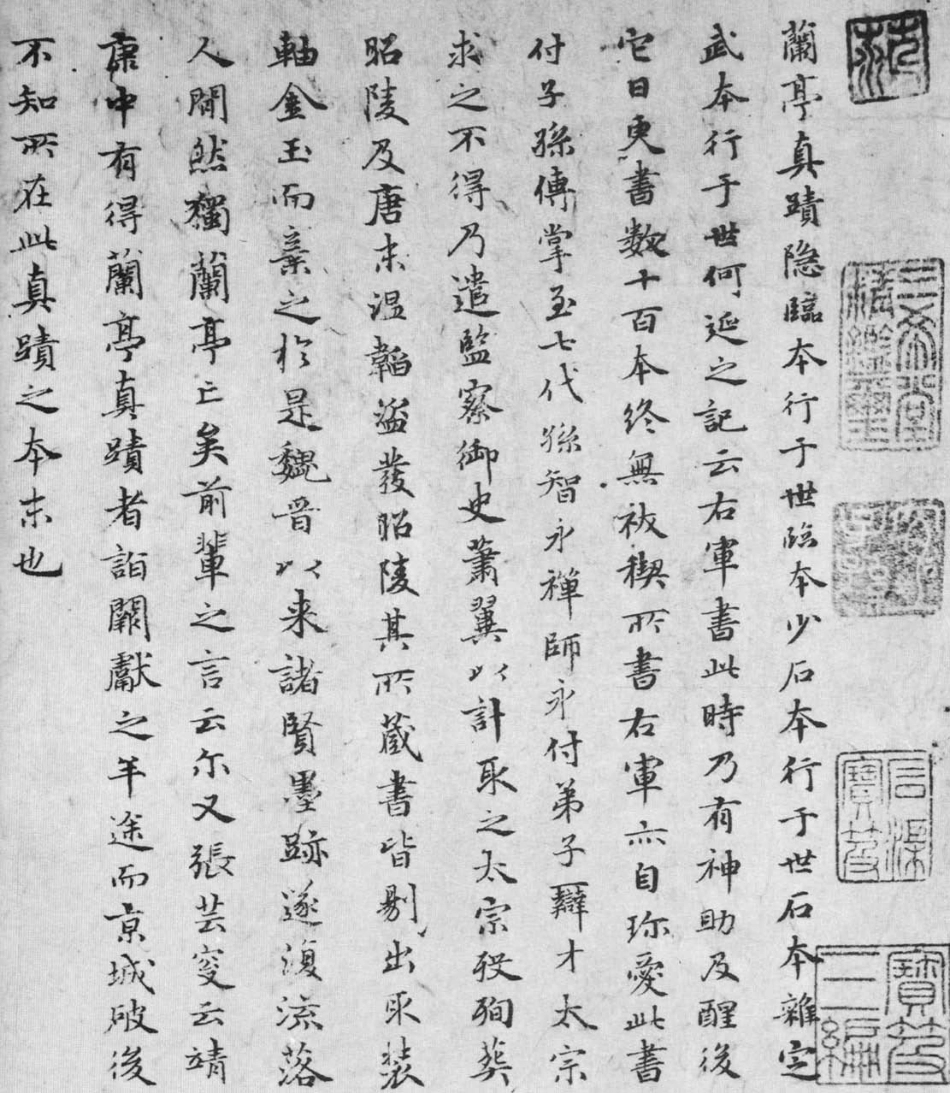 蘭亭真蹟隐臨本行于世臨本少石本行于世石本雜定
武本行于世何延之記云右軍書此時乃有神助及醒後
它日更書数十百本終無祓禊所書右軍亦自珎愛此書
付子孫傳掌至七代孫智永禪師永付弟子辯才太宗
求之不得乃遣監察御史蕭翼以計取之太宗殁殉葬
昭陵及唐末温韜盗發昭陵其所蔵書皆剔出取装
軸金玉而棄之於是魏晋以来諸賢墨跡遂復流落
人間然獨蘭亭亡矣前輩之言云尓又張芸叟云靖
康中有得蘭亭真蹟者詣闕獻之半途而京城破後
不知所在此真蹟之本末也
三希堂精鑑璽
宜子孫
石渠寶笈
寶笈三編